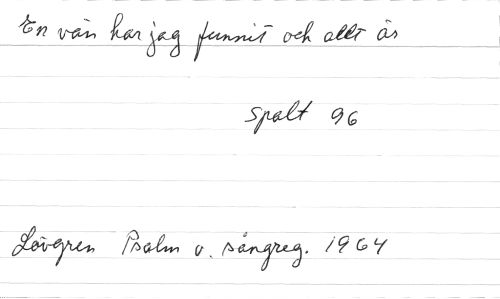 En vän har jag funnit och allt är
spalt 96
Lövgren Psalm o. sångreg. 1964